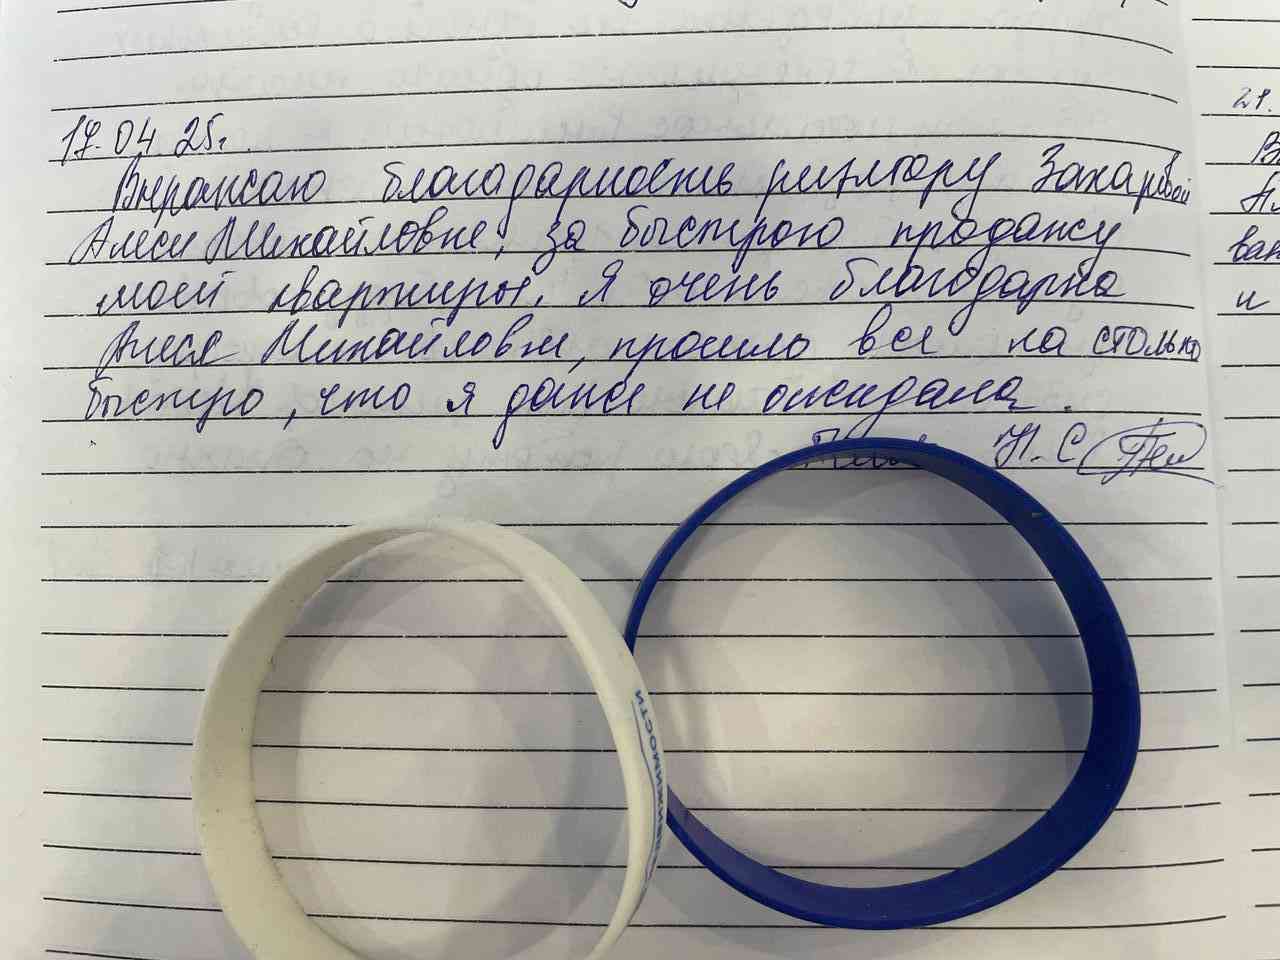 17.04.25г.
Выражаю благодарность риэлтору Захаровой
Алеси Михайловне, за быструю продажу
моей квартиры. Я очень благодарна
Алесе Михайловне, прошло все на столько
быстро, что я даже не ожидала.
Н.С
21.
В
и
НИЖИМОСТИ